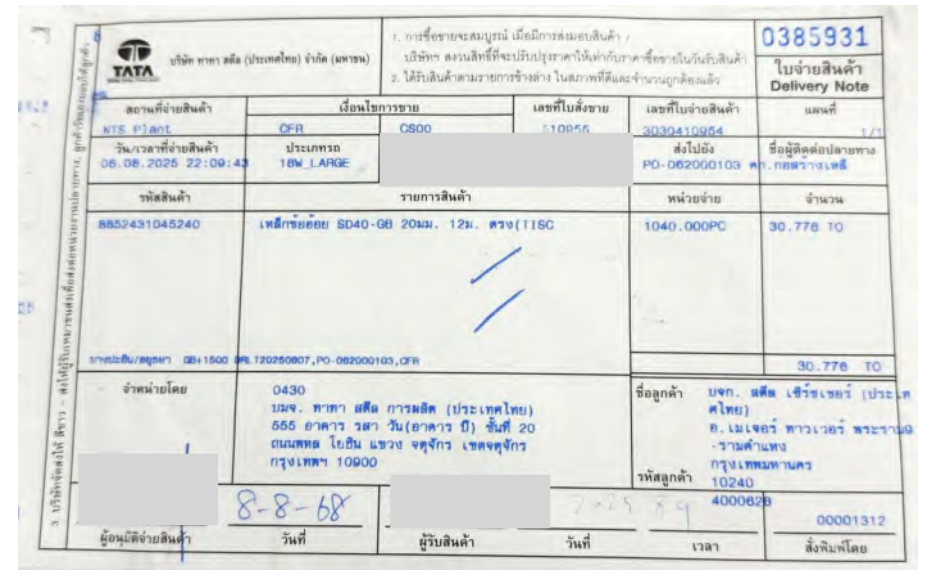 TATA
บริษัท ทาทา สตีล (ประเทศไทย) จำกัด (มหาชน)
1. การซื้อขายจะสมบูรณ์ เมื่อมีการส่งมอบสินค้า
บริษัทฯ สงวนสิทธิ์ที่จะปรับปรุงราคาให้เท่ากับราคาซื้อขายในวันรับสินค้า
2. ได้รับสินค้าตามรายการข้างล่าง ในสภาพที่ดีและจำนวนถูกต้องแล้ว
0385931
ใบจ่ายสินค้า
Delivery Note
สถานที่จ่ายสินค้า เงื่อนไขการขาย เลขที่ใบสั่งขาย เลขที่ใบจ่ายสินค้า แผนที่
NTS Plant CFR CS00 510955 3030410954 1/1
วัน/เวลาที่จ่ายสินค้า ประเภทรถ ส่งไปยัง ชื่อผู้ติดต่อปลายทาง
06.08.2025 22:09:43 18W_LARGE PO-062000103
รหัสสินค้า รายการสินค้า หน่วยจ่าย จำนวน
8852431045240 เหล็กข้ออ้อย SD40-GB 20มม. 12ม. ตรง(TISC 1040.000PC 30.776 TO
บางปะอิน/อยุธยา GB+1500 DRLT20250807,PO-062000103,CFR
30.776 TO
จำหน่ายโดย
0430
บมจ. ทาทา สตีล การผลิต (ประเทศไทย)
555 อาคาร รสา วัน(อาคาร บี) ชั้นที่ 20
ถนนพหล โยธิน แขวง จตุจักร เขตจตุจักร
กรุงเทพฯ 10900
ชื่อลูกค้า บจก. สตีล เซิร์ชเชอร์ (ประเท
ศไทย)
อ.เมเจอร์ ทาวเวอร์ พระราม9
-รามคำแหง
กรุงเทพมหานคร
10240
รหัสลูกค้า
400062B
8-8-68
00001312
ผู้อนุมัติจ่ายสินค้า วันที่ ผู้รับสินค้า วันที่ เวลา สั่งพิมพ์โดย